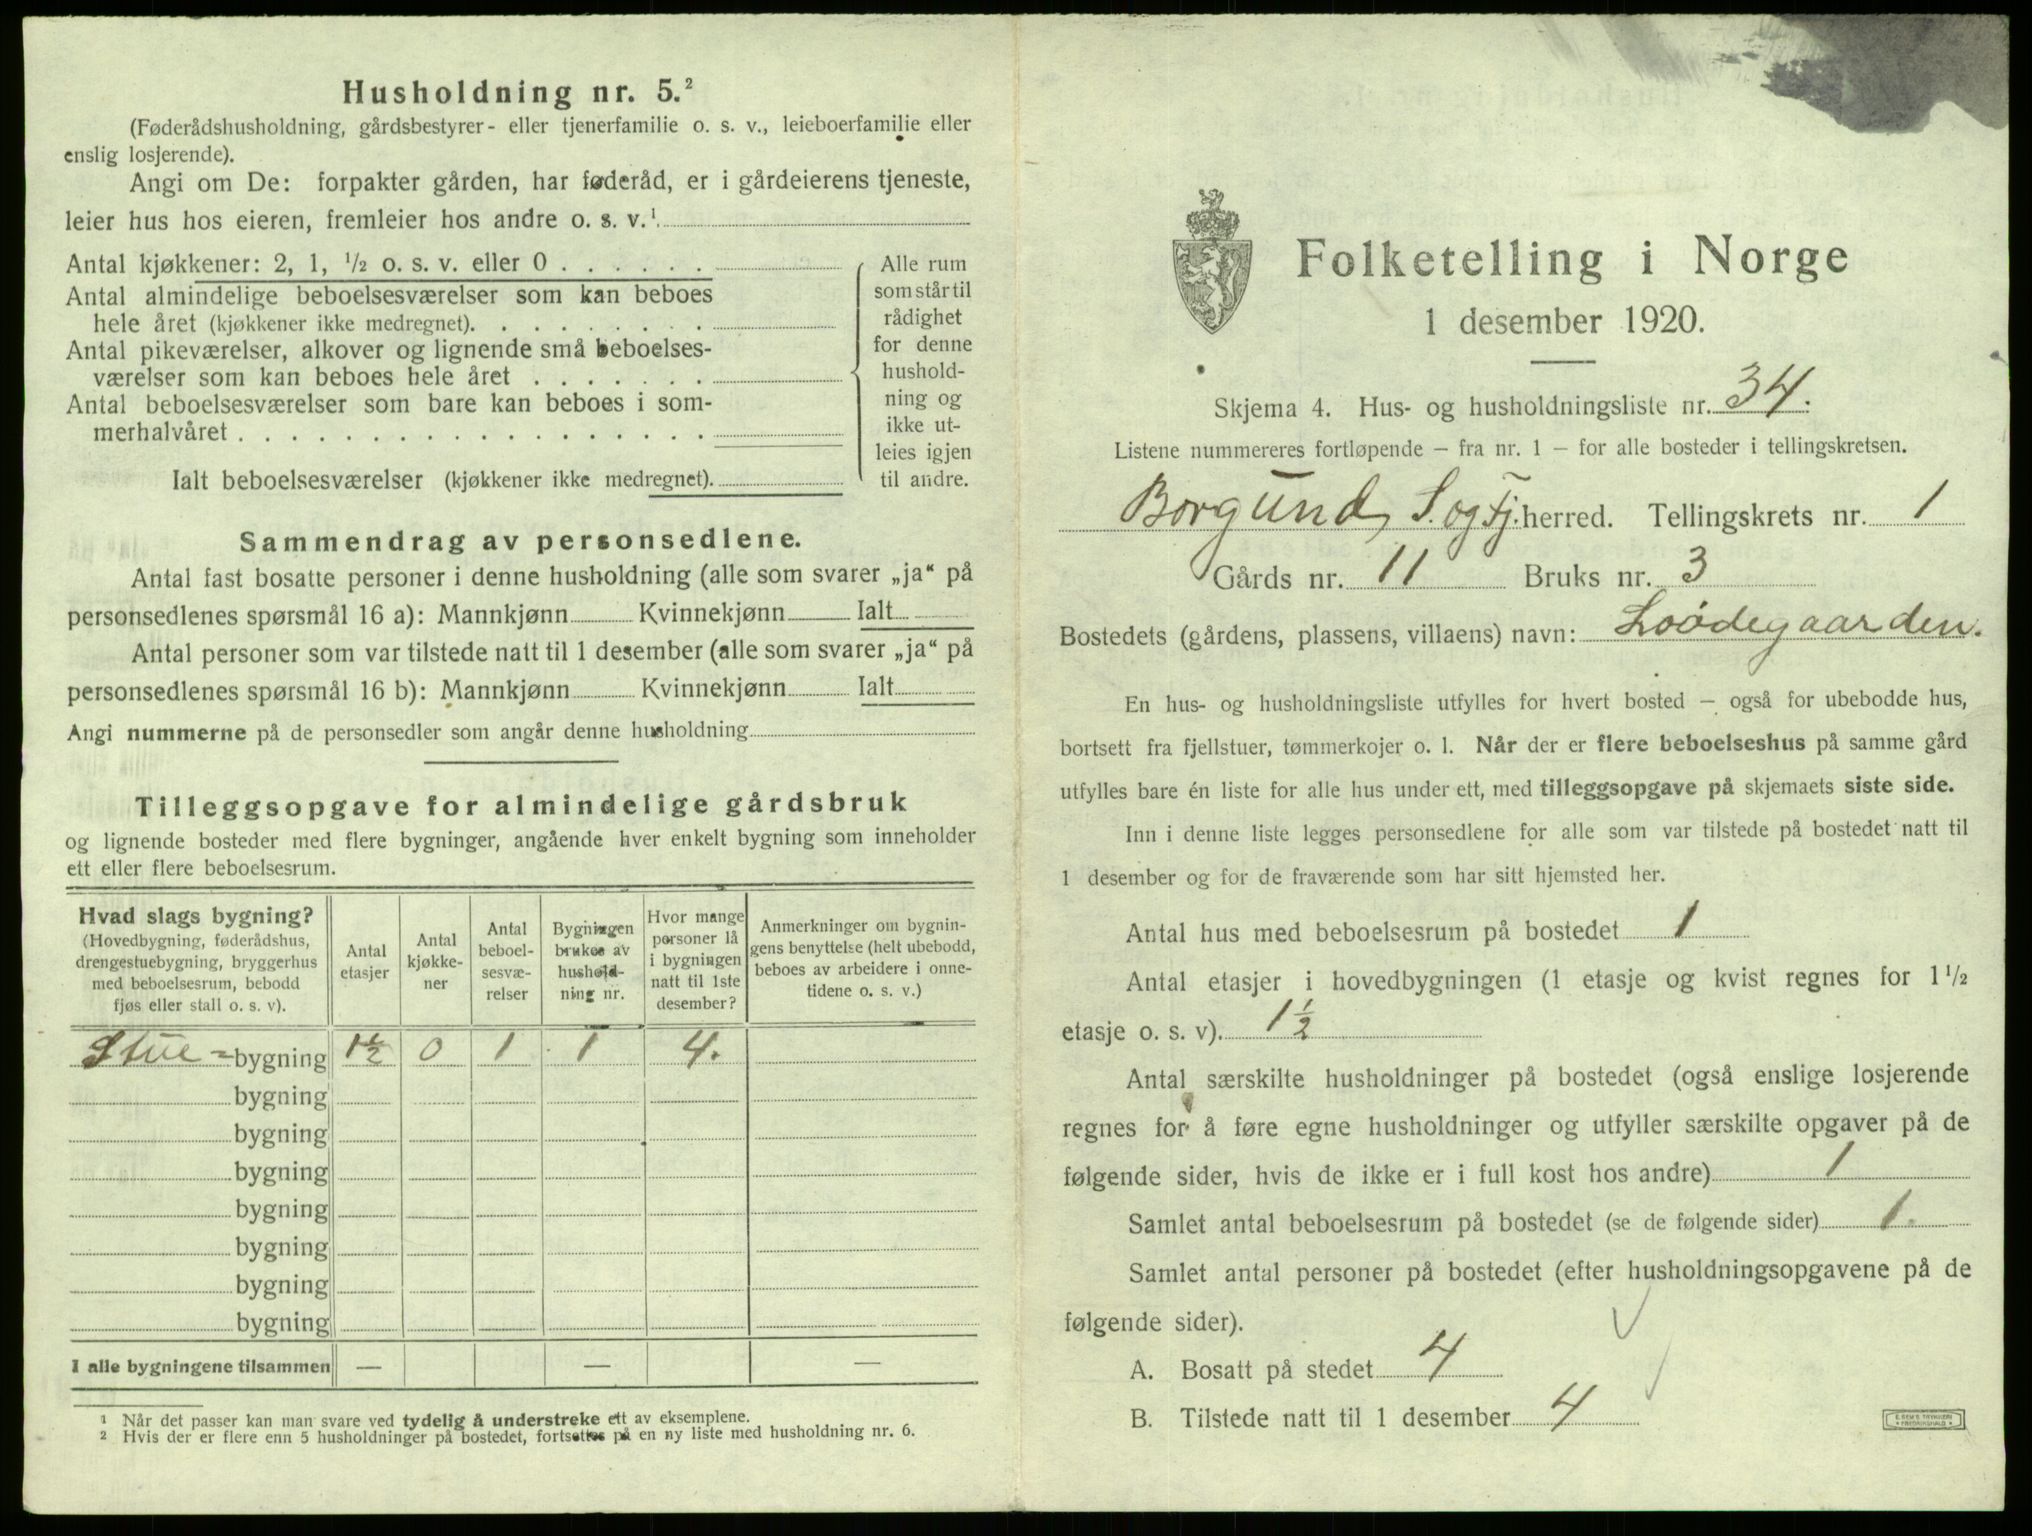 Husholdning nr. 5.²
(Føderådshusholdning, gårdsbestyrer- eller tjenerfamilie o. s. v., leieboerfamilie eller
enslig losjerende).
Angi om De: forpakter gården, har føderåd, er i gårdeierens tjeneste,
leier hus hos eieren, fremleier hos andre o. s. v.¹
Antal kjøkkener: 2, 1, ½ o. s. v. eller 0 . . . . . .
Antal almindelige beboelsesværelser som kan beboes
hele året (kjøkkener ikke medregnet). . . . . . . . .
Antal pikeværelser, alkover og lignende små beboelses-
værelser som kan beboes hele året . . . . . . .
Antal beboelsesværelser som bare kan beboes i som-
merhalvåret . . . . . . . . . . . . . . . . . .
Ialt beboelsesværelser (kjøkkener ikke medregnet).
Alle rum
som står til
rådighet
for denne
hushold-
ning og
ikke ut-
leies igjen
til andre.
Sammendrag av personsedlene.
Antal fast bosatte personer i denne husholdning (alle som svarer „ja“ på
personsedlenes spørsmål 16 a): Mannkjønn Kvinnekjønn Ialt
Antal personer som var tilstede natt til 1 desember (alle som svarer „ja“ på
personsedlenes spørsmål 16 b): Mannkjønn Kvinnekjønn Ialt
Angi nummerne på de personsedler som angår denne husholdning
Tilleggsopgave for almindelige gårdsbruk
og lignende bosteder med flere bygninger, angående hver enkelt bygning som inneholder
ett eller flere beboelsesrum.
Hvad slags bygning?
(Hovedbygning, føderådshus,
drengestuebygning, bryggerhus
med beboelsesrum, bebodd
fjøs eller stall o. s. v).
Antal
etasjer
Antal
kjøkke-
ner
Antal
beboel-
sesvæ-
relser
Bygningen
brukes av
hushold-
ning nr.
Hvor mange
personer lå
i bygningen
natt til 1ste
desember?
Anmerkninger om bygnin-
gens benyttelse (helt ubebodd,
beboes av arbeidere i onne-
tidene o. s. v.)
Stue=bygning 1½ 0 1 1 4.
bygning
bygning
bygning
bygning
bygning
bygning
bygning
I alle bygningene tilsammen — — —
¹ Når det passer kan man svare ved tydelig å understreke ett av eksemplene.
² Hvis der er flere enn 5 husholdninger på bostedet, fortsettes på en ny liste med husholdning nr. 6.
Folketelling i Norge
1 desember 1920.
Skjema 4. Hus- og husholdningsliste nr. 34.
Listene nummereres fortløpende — fra nr. 1 — for alle bosteder i tellingskretsen.
Borgund, S. og Fj. herred. Tellingskrets nr. 1
Gårds nr. 11 Bruks nr. 3
Bostedets (gårdens, plassens, villaens) navn: Loødegaarden.
En hus- og husholdningsliste utfylles for hvert bosted — også for ubebodde hus,
bortsett fra fjellstuer, tømmerkojer o. l. Når der er flere beboelseshus på samme gård
utfylles bare én liste for alle hus under ett, med tilleggsopgave på skjemaets siste side.
Inn i denne liste legges personsedlene for alle som var tilstede på bostedet natt til
1 desember og for de fraværende som har sitt hjemsted her.
Antal hus med beboelsesrum på bostedet 1
Antal etasjer i hovedbygningen (1 etasje og kvist regnes for 1½
etasje o. s. v). 1½
Antal særskilte husholdninger på bostedet (også enslige losjerende
regnes for å føre egne husholdninger og utfyller særskilte opgaver på de
følgende sider, hvis de ikke er i full kost hos andre) 1
Samlet antal beboelsesrum på bostedet (se de følgende sider) 1.
Samlet antal personer på bostedet (efter husholdningsopgavene på de
følgende sider).
A. Bosatt på stedet 4
B. Tilstede natt til 1 desember 4
E. SEM'S TRYKKERI
FREDRIKSHALD